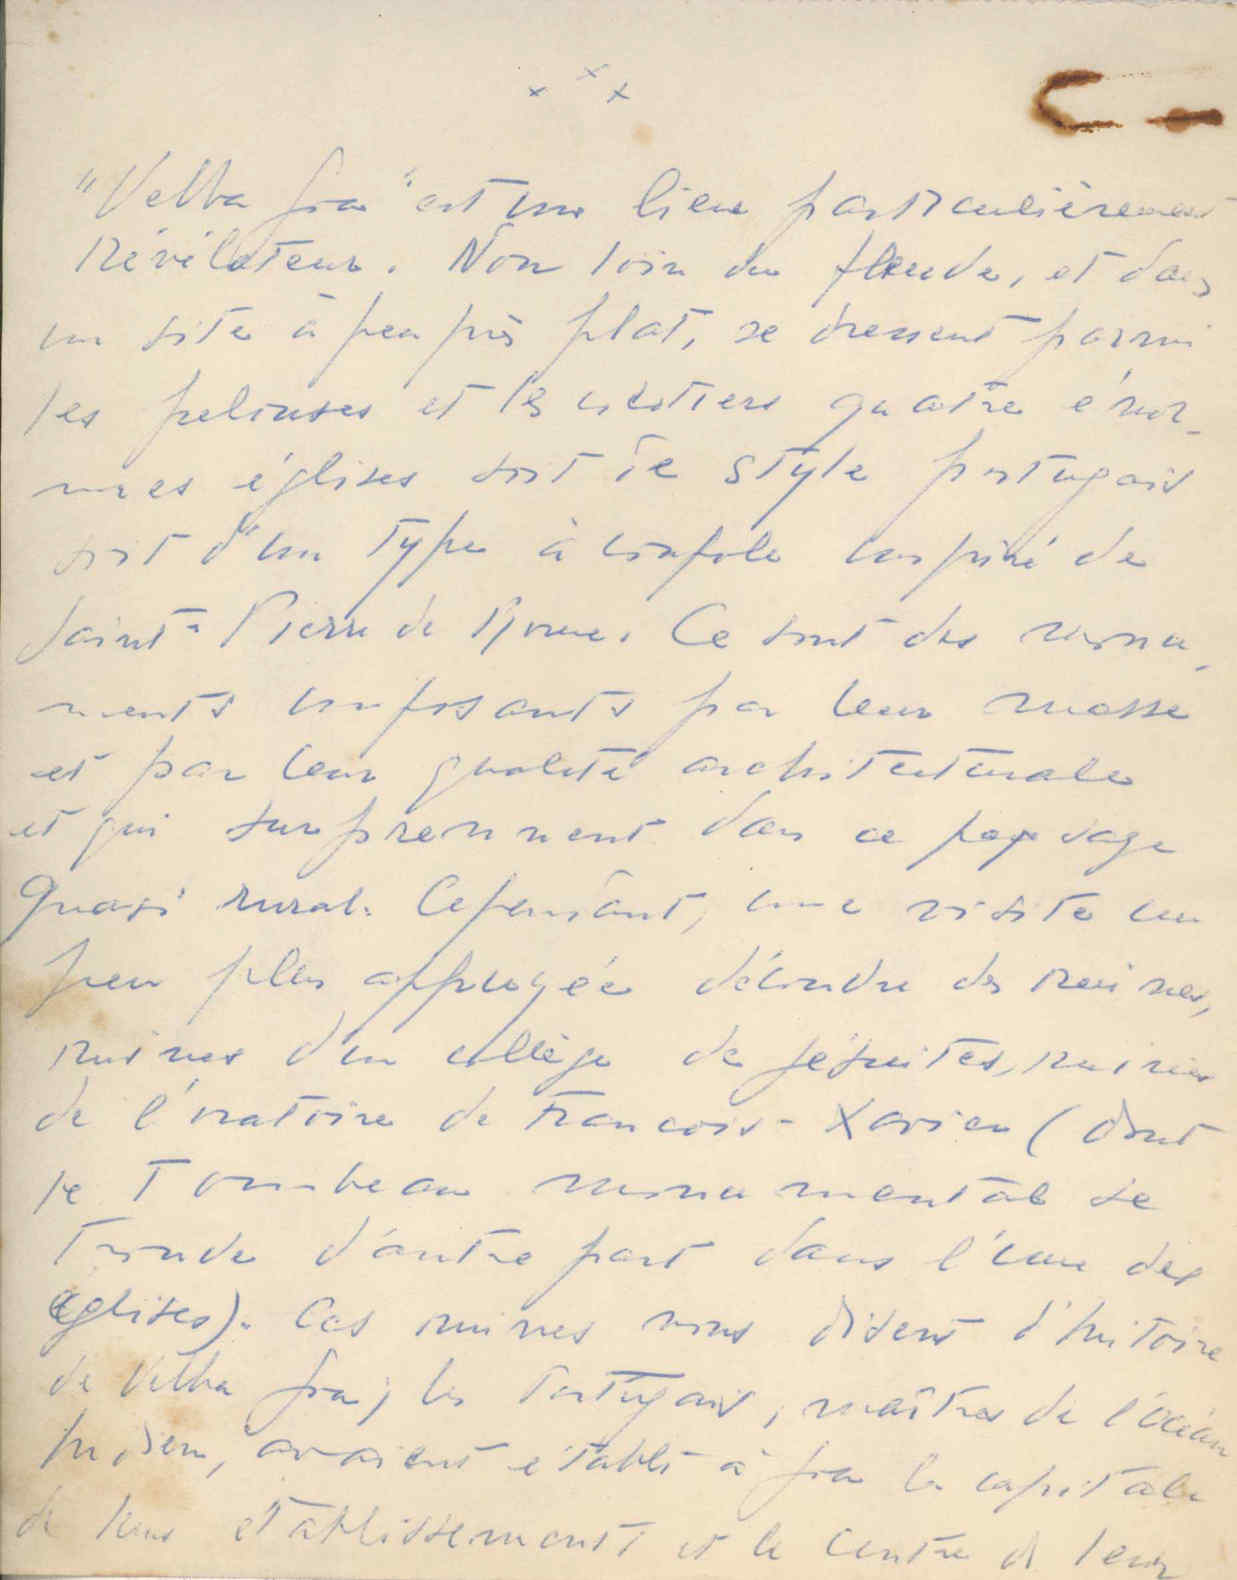 x x x
"Velha Goa" est un lieu particulièrement
révélateur. Non loin du fleuve, et dans
un site à peu près plat, se dressent parmi
les pelouses et les cocotiers quatre énor-
mes églises soit de style portugais
soit d'un type à coupole inspiré de
Saint-Pierre de Rome. Ce sont des monu-
ments imposants par leur masse
et par leur qualité architecturale
et qui surprennent dans ce paysage
quasi rural. Cependant, une visite un
peu plus appuyée découvre des ruines,
ruines d'un collège de jésuites, ruines
de l'oratoire de François-Xavier (dont
le tombeau monumental se
trouve d'autre part dans l'une des
églises). Ces ruines nous disent l'histoire
de Velha Goa ; les Portugais, maîtres de l'Océan
Indien, avaient établi à Goa la capitale
de leurs établissements et le centre de leur